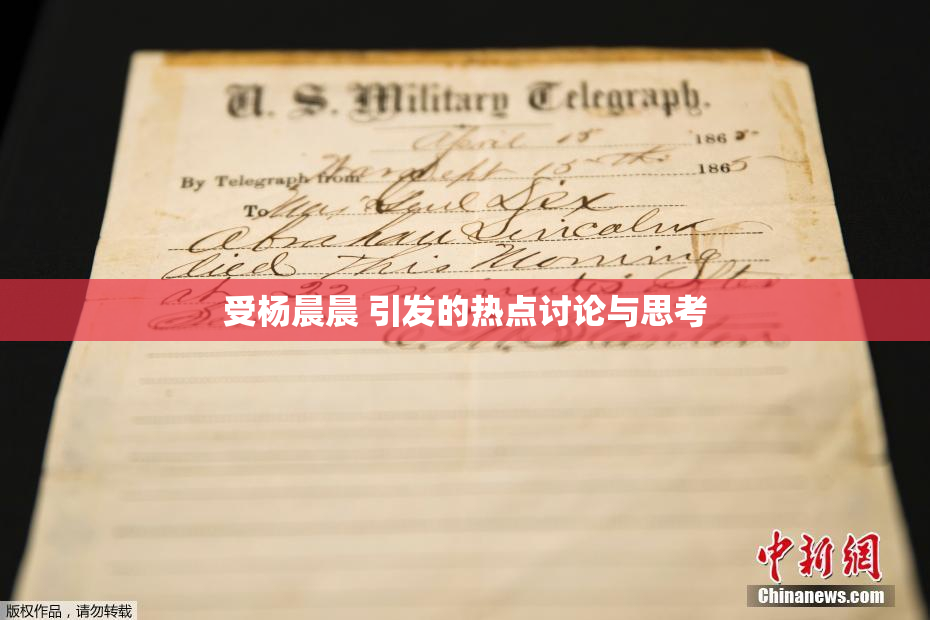 U. S. Military Telegraph.
April 15 1865-
By Telegraph from War Dept 15th 1865
To Maj Genl Dix
Abraham Lincoln
died This Morning
at 22 minutes after
受杨晨晨 引发的热点讨论与思考
E. M. Stanton
中新网
Chinanews.com
版权作品，请勿转载